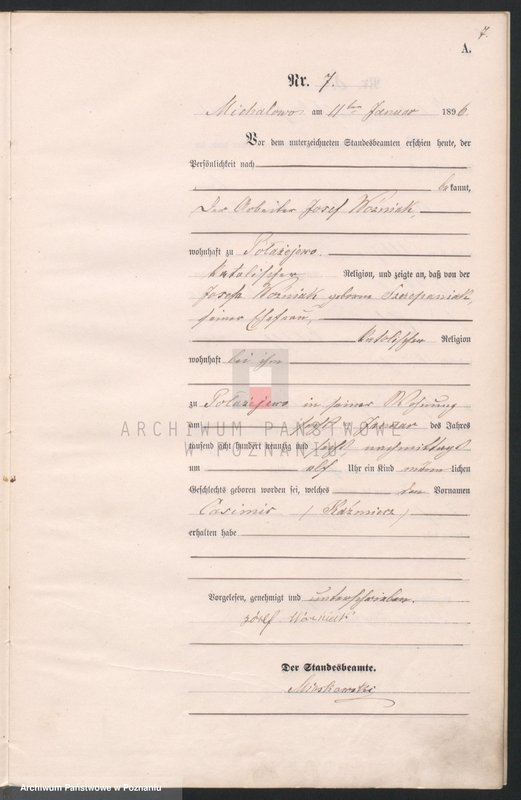 7.
A.
Nr. 7.
Michalowo am 11ten Januar 1896.
Vor dem unterzeichneten Standesbeamten erschien heute, der
Persönlichkeit nach
bekannt,
der Arbeiter Josef Woźniak,
wohnhaft zu Polażejewo
katolischer Religion, und zeigte an, daß von der
Josefa Woźniak geborene Szczepaniak,
seiner Ehefrau,
katolischer Religion
wohnhaft bei ihm
zu Polażejewo in seiner Wohnung
am Januar des Jahres
tausend acht hundert neunzig und sechs nachmittags
um elf Uhr ein Kind männlichen
Geschlechts geboren worden sei, welches den Vornamen
Casimir (Kaźmierz)
erhalten habe
Vorgelesen, genehmigt und unterschrieben.
Józef
Der Standesbeamte.
ARCHIWUM PAŃSTWOWE
W POZNANIU
Archiwum Państwowe w Poznaniu